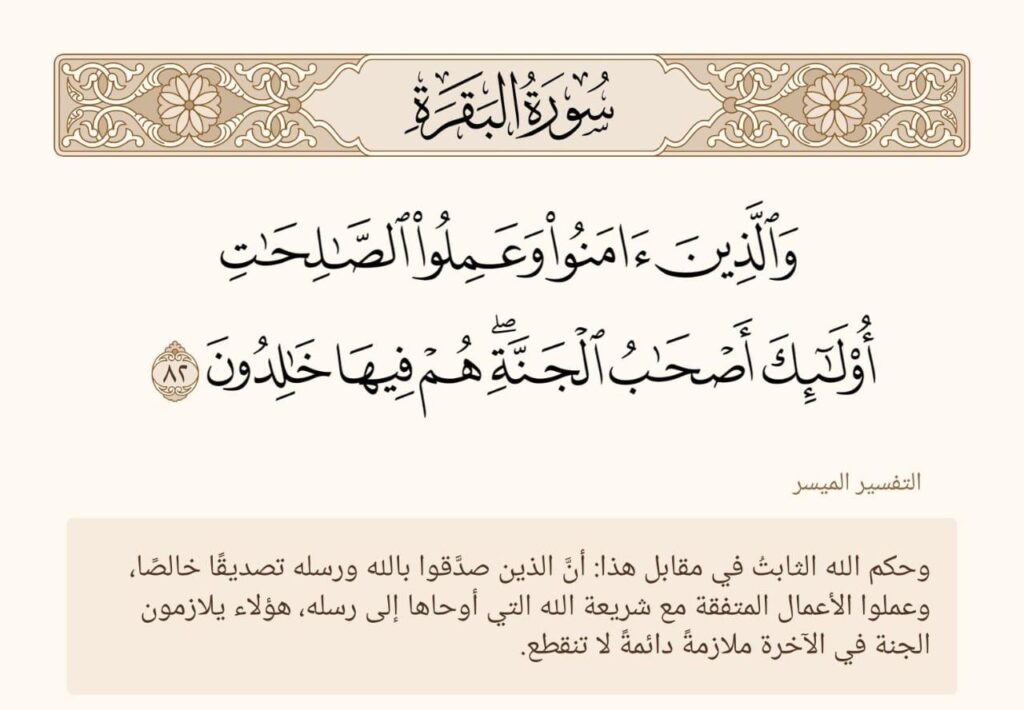 سُورَةُ البَقَرَةِ
وَٱلَّذِينَ ءَامَنُواْ وَعَمِلُواْ ٱلصَّـٰلِحَـٰتِ
أُوْلَـٰٓئِكَ أَصۡحَـٰبُ ٱلۡجَنَّةِۖ هُمۡ فِيهَا خَـٰلِدُونَ ٨٢
التفسير الميسر
وحكم الله الثابتُ في مقابل هذا: أنَّ الذين صدَّقوا بالله ورسله تصديقًا خالصًا،
وعملوا الأعمال المتفقة مع شريعة الله التي أوحاها إلى رسله، هؤلاء يلازمون
الجنة في الآخرة ملازمةً دائمةً لا تنقطع.